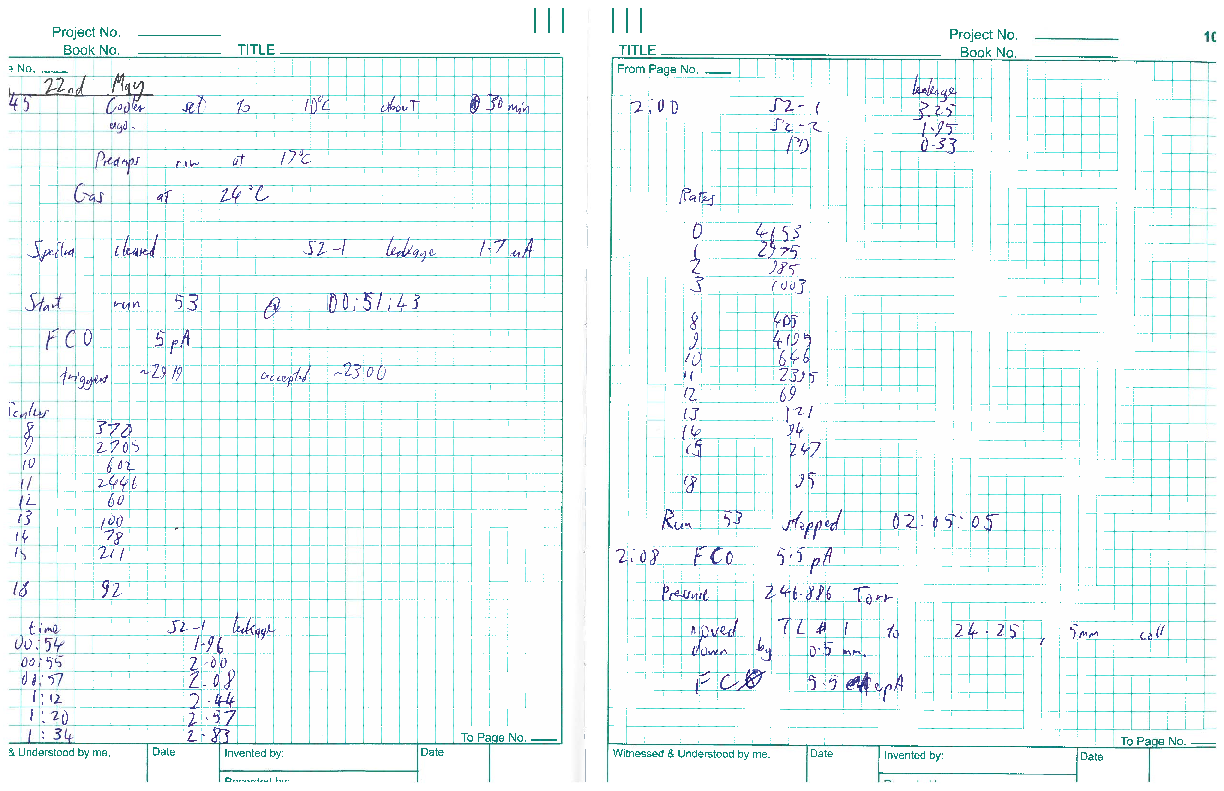 Project No.
Book No. TITLE
No.
22nd May
45 Cooler set to 10°C about 30 min
ago.
Preamps now at 17°C
Gas at 24°C
Spectra cleared S2-1 leakage 1.7 uA
Start run 53 @ 00:51:43
FC0 5 pA
triggers ~2919 accepted ~2300
8 370
9 2705
10 602
11 2446
12 60
13 100
14 78
15 211
18 92
time S2-1 leakage
00:54 1.96
00:55 2.00
00:57 2.08
1:12 2.44
1:20 2.57
1:34 2.83
To Page No.
& Understood by me. Date Invented by: Date
Recorded by:
Project No. 10
TITLE Book No.
From Page No.
leakage
2:00 S2-1 3.25
S2-2 1.95
0.33
Rates
0 4153
1 2975
2 985
3 1003
8 405
9 4195
10 646
11 2395
12 69
13 121
14 94
15 247
18 95
Run 53 stopped 02:05:05
2:08 FC0 5.5 pA
Pressure 246.886 Torr
moved TL # 1 to 24.25, 5mm coll
down by 0.5 mm.
FC0 5.5 epA
To Page No.
Witnessed & Understood by me. Date Invented by: Date